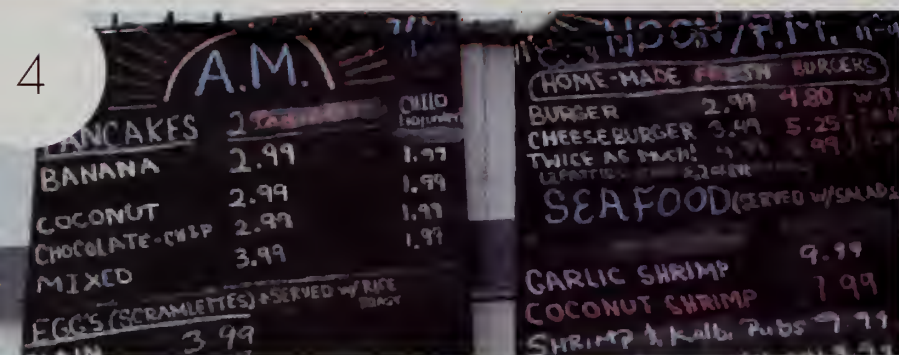 4
A.M.
PANCAKES 2 CHILD
BANANA 2.99 1.99
COCONUT 2.99 1.99
CHOCOLATE-CHIP 2.99 1.99
MIXED 3.99 1.99
EGG'S (SCRAMLETTES) SERVED W/ RICE
3.99
NOON / P.M.
HOME-MADE FRESH BURGERS
BURGER 2.99 4.80
CHEESEBURGER 3.49 5.25
TWICE AS MUCH!
SEAFOOD (SERVED W/ SALADS
GARLIC SHRIMP 9.99
COCONUT SHRIMP 7.99
SHRIMP & Kalbi Ribs 9.99